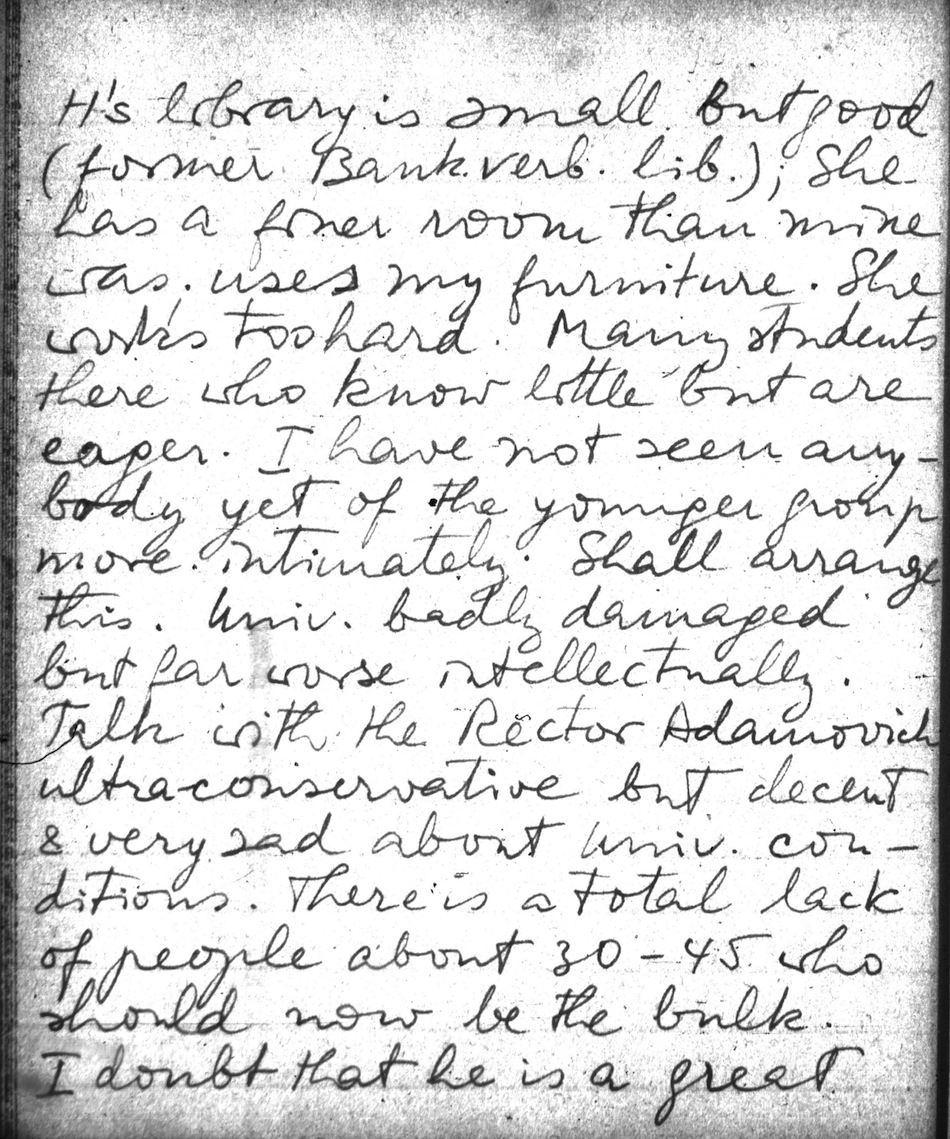 H's library is small but good
(former Bankverb. lib.); She
has a finer room than mine
was; uses my furniture. She
works too hard. Many students
there who know little but are
eager. I have not seen any-
body yet of the younger group
more intimately. Shall arrange
this. Univ. badly damaged
but far worse intellectually.
Talk with the Rector Adamovich
ultraconservative but decent
& very sad about Univ. con-
ditions. There is a total lack
of people about 30-45 who
should now be the bulk.
I doubt that he is a great